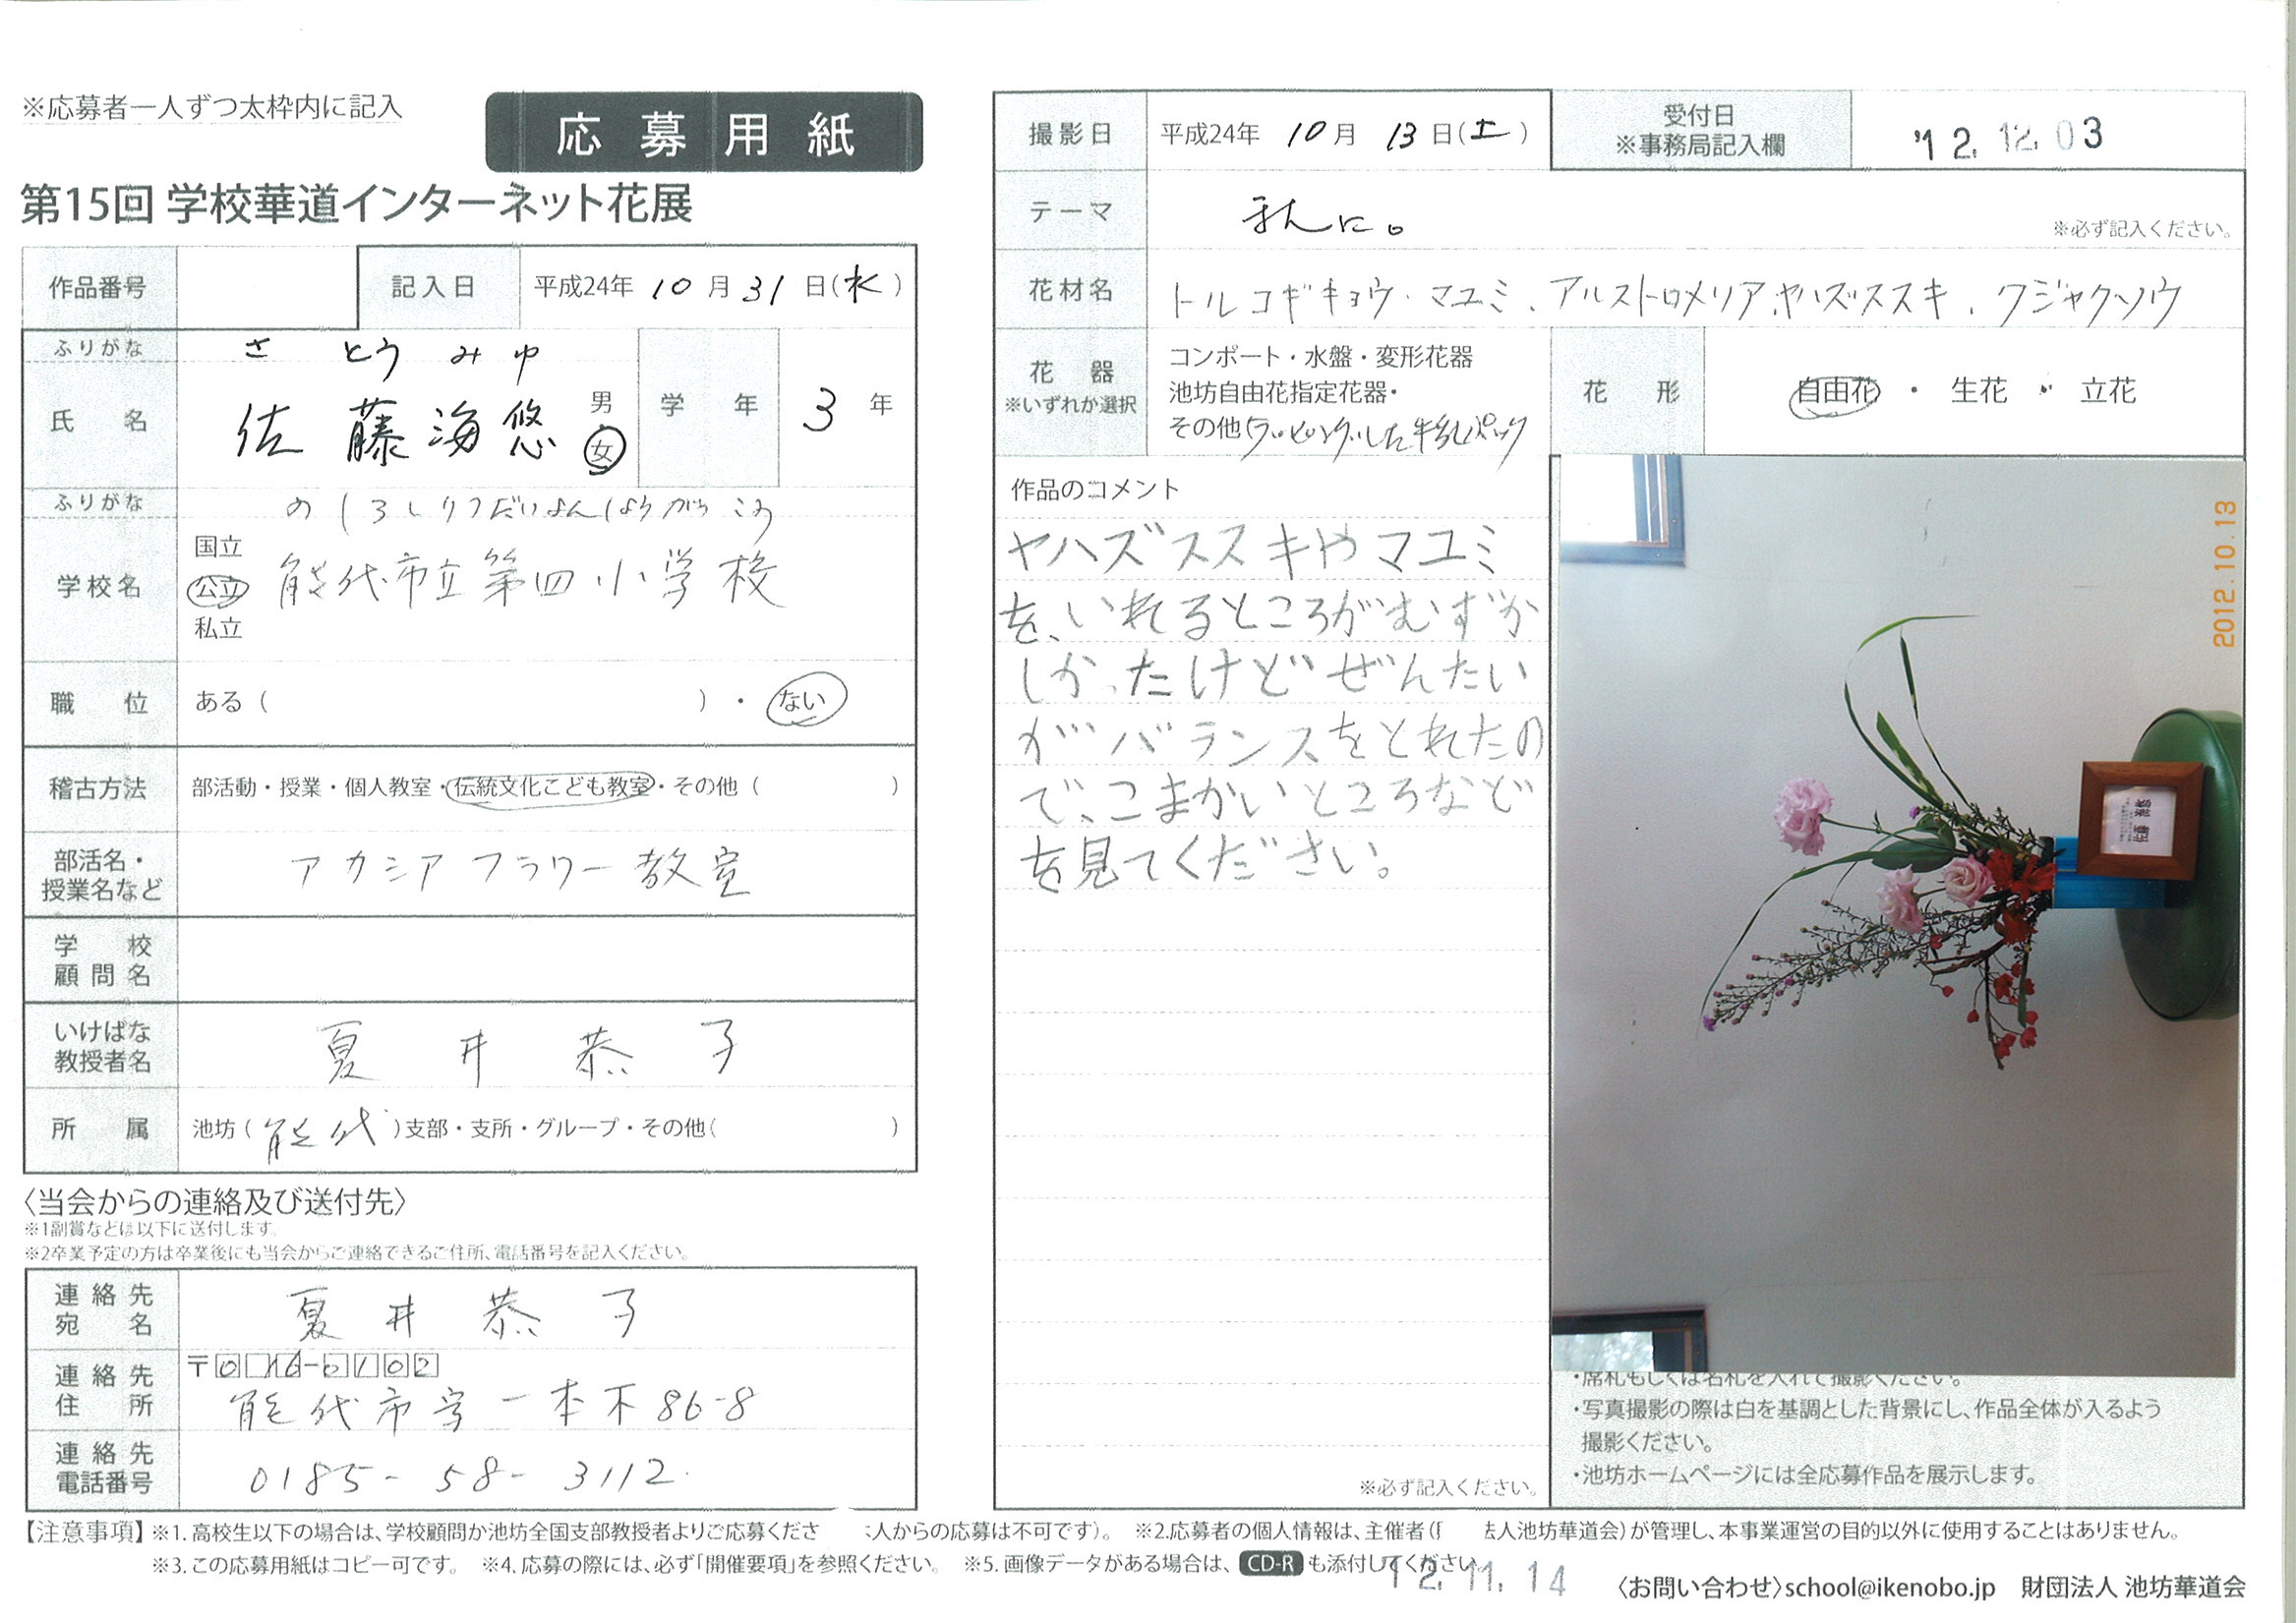 ※応募者一人ずつ太枠内に記入
応募用紙
第15回 学校華道インターネット花展
作品番号
記入日 平成24年 10月 31日(水)
ふりがな さとう みゆ
氏名 佐藤海悠 男・女
学年 3年
ふりがな のしろしりつだいよんしょうがっこう
学校名 国立 公立 私立 能代市立第四小学校
職位 ある( )・ない
稽古方法 部活動・授業・個人教室・伝統文化こども教室・その他( )
部活名・授業名など アカシアフラワー教室
学校顧問名
いけばな教授者名 夏井恭子
所属 池坊(能代)支部・支所・グループ・その他( )
〈当会からの連絡及び送付先〉
※1副賞などは以下に送付します。
※2卒業予定の方は卒業後にも当会からご連絡できるご住所、電話番号を記入ください。
連絡先宛名 夏井恭子
連絡先住所 〒016-0102
能代市字一本木86-8
連絡先電話番号 0185-58-3112
撮影日 平成24年 10月 13日(土)
受付日 ※事務局記入欄 '12.12.03
テーマ ※必ず記入ください。
花材名 トルコギキョウ・マユミ、アルストロメリア、ヤハズススキ、クジャクソウ
花器 ※いずれか選択 コンポート・水盤・変形花器
池坊自由花指定花器・
その他(ラッピングした牛乳パック
花形 自由花・生花・立花
作品のコメント
ヤハズススキやマユミ
を、いれるところがむずか
しかったけどぜんたい
がバランスをとれたの
で、こまかいところなど
を見てください。
※必ず記入ください。
2012.10.13
・席札もしくは名札を入れて撮影ください。
・写真撮影の際は白を基調とした背景にし、作品全体が入るよう
撮影ください。
・池坊ホームページには全応募作品を展示します。
【注意事項】※1. 高校生以下の場合は、学校顧問か池坊全国支部教授者よりご応募くださ 人からの応募は不可です)。 ※2.応募者の個人情報は、主催者( 法人池坊華道会)が管理し、本事業運営の目的以外に使用することはありません。
※3.この応募用紙はコピー可です。 ※4.応募の際には、必ず「開催要項」を参照ください。 ※5. 画像データがある場合は、CD-Rも添付してください。
12.11.14
〈お問い合わせ〉school@ikenobo.jp 財団法人 池坊華道会